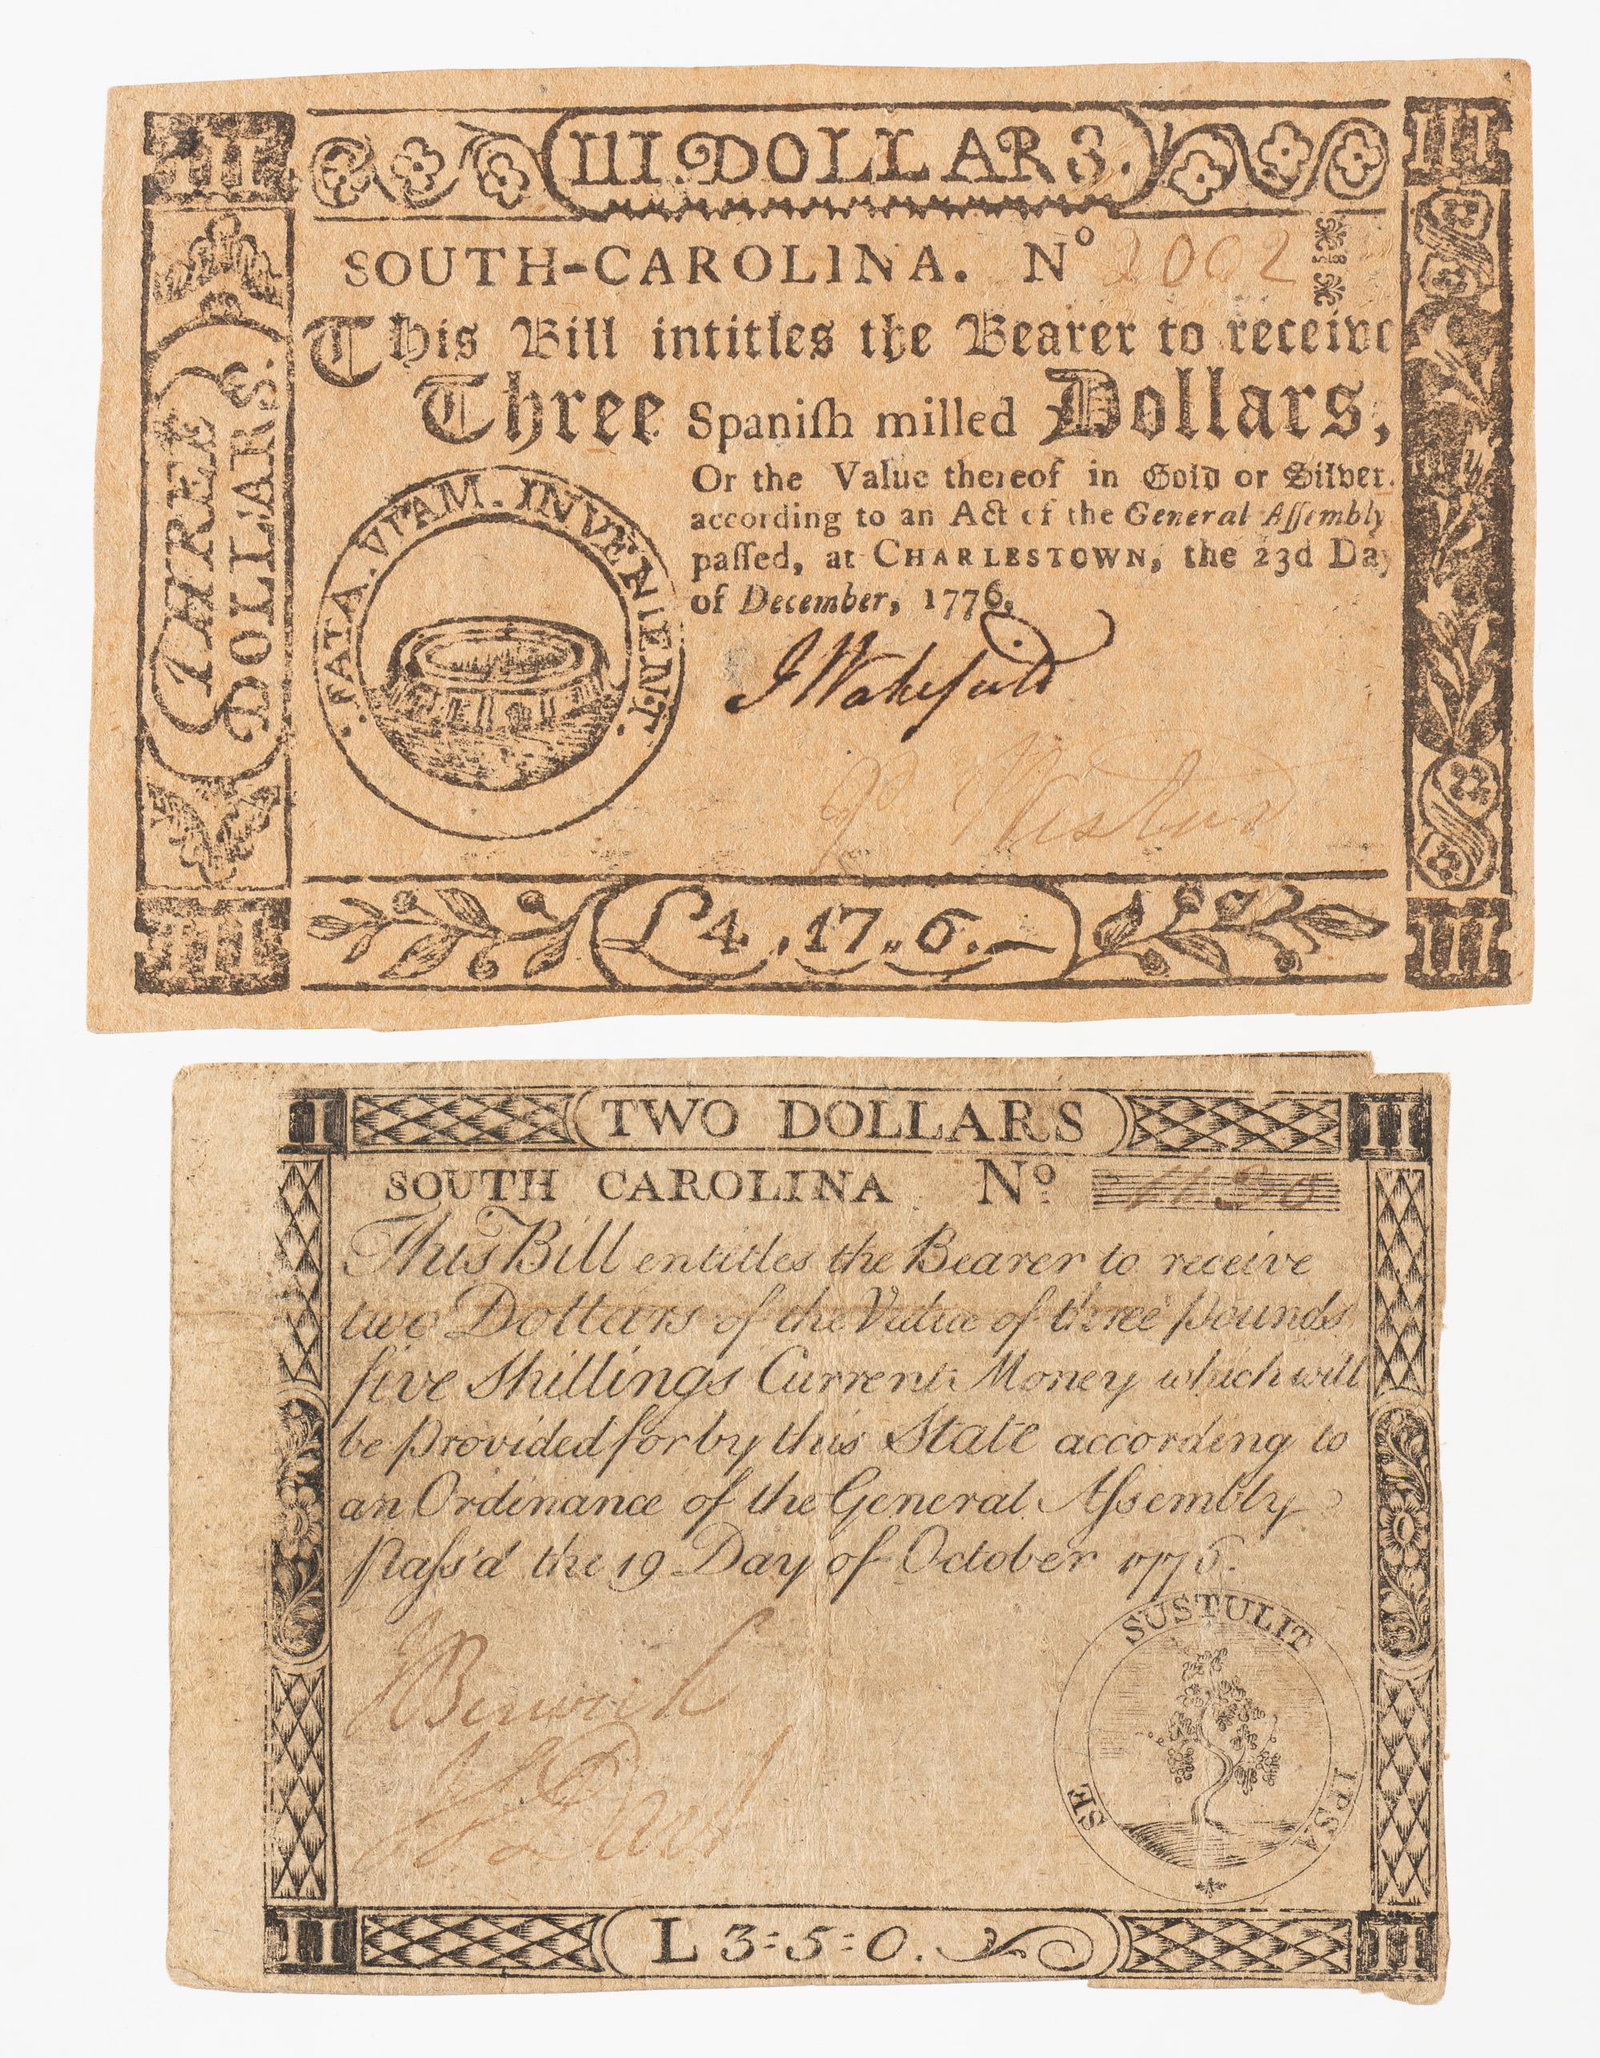 III
III. DOLLARS.
III
SOUTH-CAROLINA. No 2002
THREE
DOLLARS.
This Bill intitles the Bearer to receive
Three Spaniſh milled Dollars,
Or the Value thereof in Gold or Silver.
according to an Act of the General Aſſembly
paſſed, at CHARLESTOWN, the 23d Day
of December, 1776.
FATA. VIAM. INVENIENT.
J Wakefield
III
£4.,17,,6.
III
II
TWO DOLLARS
II
SOUTH CAROLINA No.
This Bill entitles the Bearer to receive
two Dollars of the Value of three pounds
five Shillings Current Money which will
be provided for by this State according to
an Ordinance of the General Aſsembly
Paſs'd the 19 Day of October 1776.
SE SUSTULIT IPSA
Berwick
II
L 3:5:0.
II